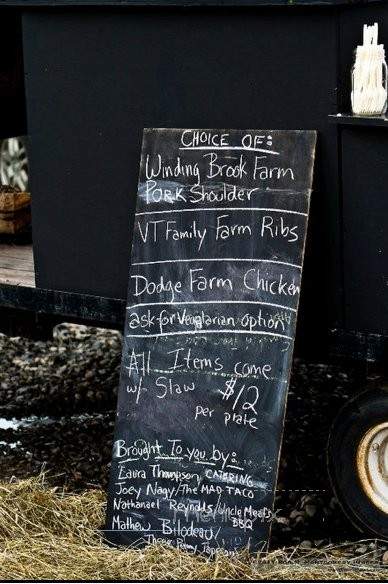 CHOICE OF:
Winding Brook Farm
PORK Shoulder
VT Family Farm Ribs
Dodge Farm Chicken
ask for Vegatarian option
All Items come
w/ Slaw $12
per plate
Brought To you by:
Laura Thompson CATERING
Joey Nagy/The MAD TACO
Nathanael Reynolds/Uncle Meat's
BBQ
Mathew Bilodeau/